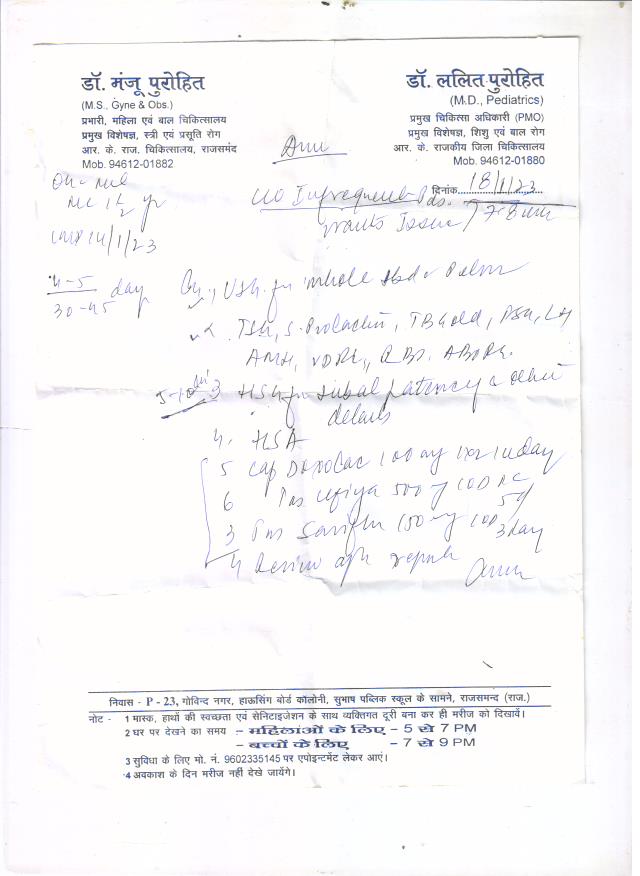 डॉ. मंजू पुरोहित
(M.S., Gyne & Obs.)
प्रभारी, महिला एवं बाल चिकित्सालय
प्रमुख विशेषज्ञ, स्त्री एवं प्रसूति रोग
आर. के. राज. चिकित्सालय, राजसमंद
Mob. 94612-01882
डॉ. ललित पुरोहित
(M.D., Pediatrics)
प्रमुख चिकित्सा अधिकारी (PMO)
प्रमुख विशेषज्ञ, शिशु एवं बाल रोग
आर. के. राजकीय जिला चिकित्सालय
Mob. 94612-01880
दिनांक 18/1/23
LMP 14/1/23
4-5 day
30-45
C/O Infrequent
wants Issue
USG for whole Abd & Pelvis
TSH, S. Prolactin, TB Gold, FSH, LH
AMH, VDRL, RBS, ABORh.
3 HSG for tubal patency & other
details
4. HSA
5 Cap 100 mg 1x2 10 day
6 500 mg 1 OD
5 d
3 150 mg 1 OD 3 day
4 Review
निवास - P - 23, गोविन्द नगर, हाऊसिंग बोर्ड कॉलोनी, सुभाष पब्लिक स्कूल के सामने, राजसमन्द (राज.)
नोट - 1 मास्क, हाथों की स्वच्छता एवं सेनिटाइजेशन के साथ व्यक्तिगत दूरी बना कर ही मरीज को दिखावें।
2 घर पर देखने का समय - महिलाओं के लिए - 5 से 7 PM
- बच्चों के लिए - 7 से 9 PM
3 सुविधा के लिए मो. नं. 9602335145 पर एपोइन्टमेंट लेकर आएं।
4 अवकाश के दिन मरीज नहीं देखे जायेंगे।